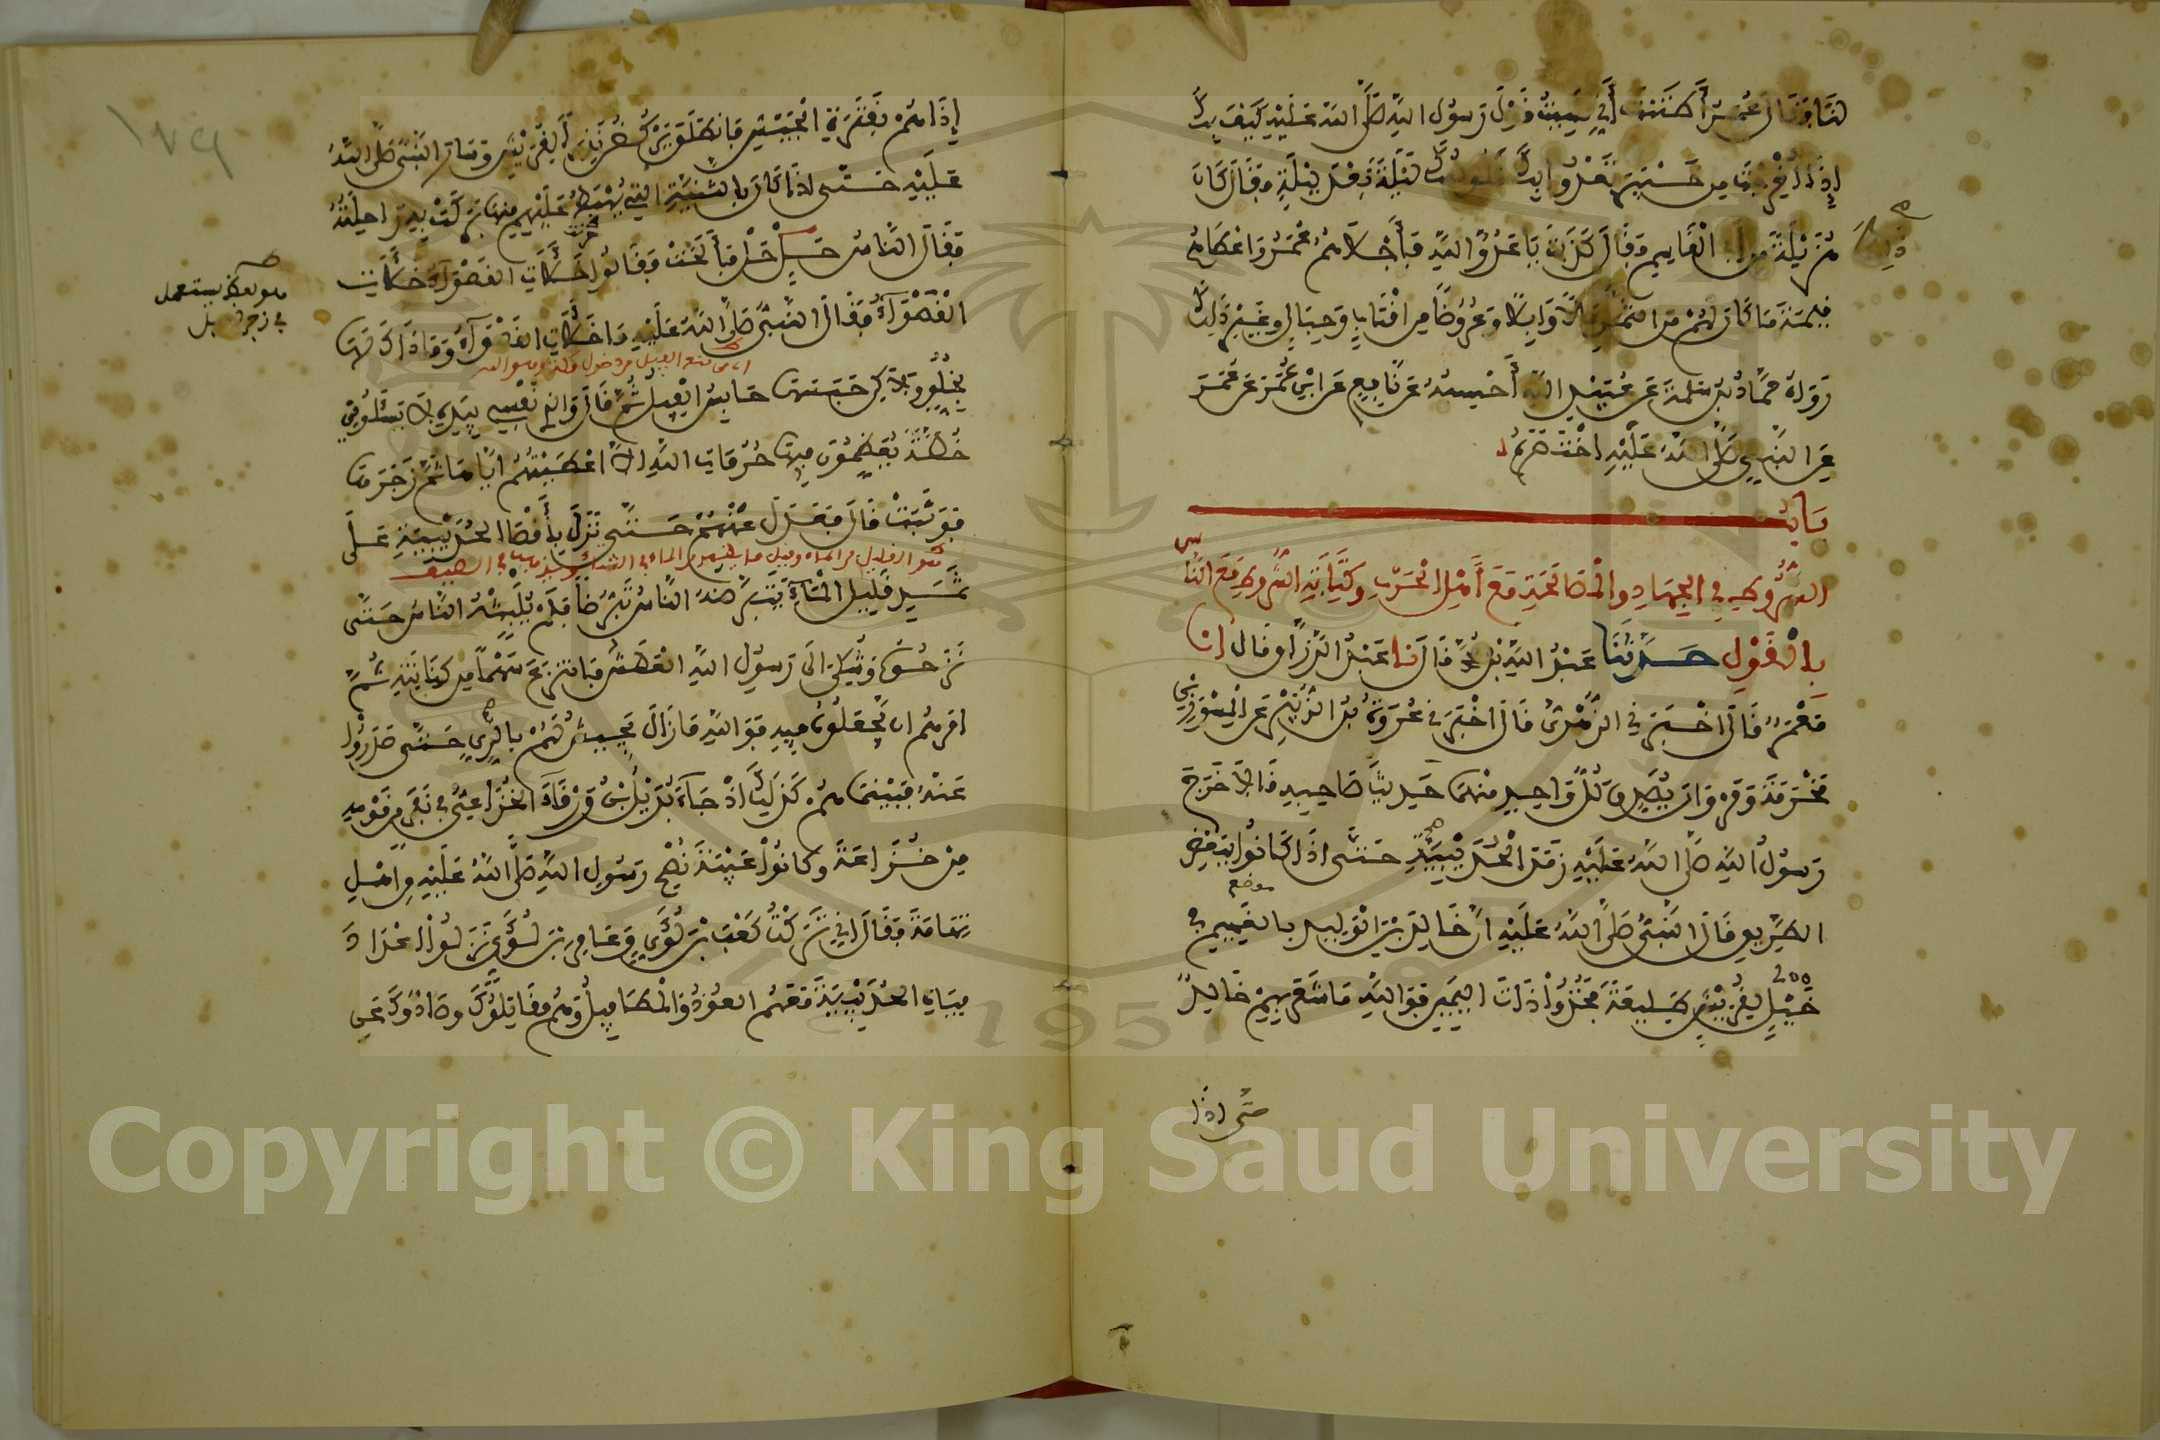 لنا فقال عمر أظننت أني نسيت قول رسول الله صلى الله عليه كيف بك
إذا أخرجت من خيبر تعدوا بك قلوصك ليلة بعد ليلة فقال كان
ذلك
هزيلة من أبي القاسم فقال كذبت يا عدو الله فأجلاهم عمر وأعطاهم
قيمة ما كان لهم من الثمر مالا وإبلا وعروضا من أقتاب وحبال وغير ذلك
رواه حماد بن سلمة عن عبيد الله أحسبه عن نافع عن ابن عمر عن عمر
عن النبي صلى الله عليه اختصره
باب
الشروط في الجهاد والمصالحة مع أهل الحرب وكتابة الشروط مع الناس
بالقول حدثنا عبد الله بن محمد قال نا عبد الرزاق قال انا
معمر قال أخبرني الزهري قال أخبرني عروة بن الزبير عن المسور بن
مخرمة ومروان يصدق كل واحد منهما حديث صاحبه قالا خرج
رسول الله صلى الله عليه زمن الحديبية حتى إذا كانوا ببعض
موضع
الطريق قال النبي صلى الله عليه ان خالد بن الوليد بالغميم في
200
خيل لقريش طليعة فخذوا ذات اليمين فوالله ما شعر بهم خالد
حتى اذا
١٧٩
إذا هم بقترة الجيش فانطلق يركض نذيرا لقريش وسار النبي صلى الله
عليه حتى إذا كان بالثنية التي يهبط عليهم منها بركت به راحلته
فقال الناس حل حل فألحت وقالوا خلأت القصواء خلأت
القصواء فقال النبي صلى الله عليه ما خلأت القصواء وما ذاك لها
هو بعكر يستعمل
في زجر الابل
بخلق ولكن حبسها حابس الفيل ثم قال والذي نفسي بيده لا يسئلوني
خطة يعظمون فيها حرمات الله الا أعطيتهم إياها ثم زجرها
فوثبت قال فعدل عنهم حتى نزل بأقصا الحديبية على
ثمد قليل الماء يتبرضه الناس تبرضا فلم يلبثه الناس حتى
نزحوه وشكي الى رسول الله العطش فانتزع سهما من كنانته ثم
امرهم ان يجعلوه فيه فوالله مازال يجيش لهم بالري حتى صدروا
عنه فبينما هم كذلك اذ جاء بديل بن ورقاء الخزاعي في نفر من قومه
من خزاعة وكانوا عيبة نصح رسول الله صلى الله عليه من اهل
تهامة فقال اني تركت كعب بن لؤي وعامر بن لؤي نزلوا اعداد
مياه الحديبية معهم العوذ والمطافيل وهم مقاتلوك وصادوك عن
Copyright © King Saud University
1957